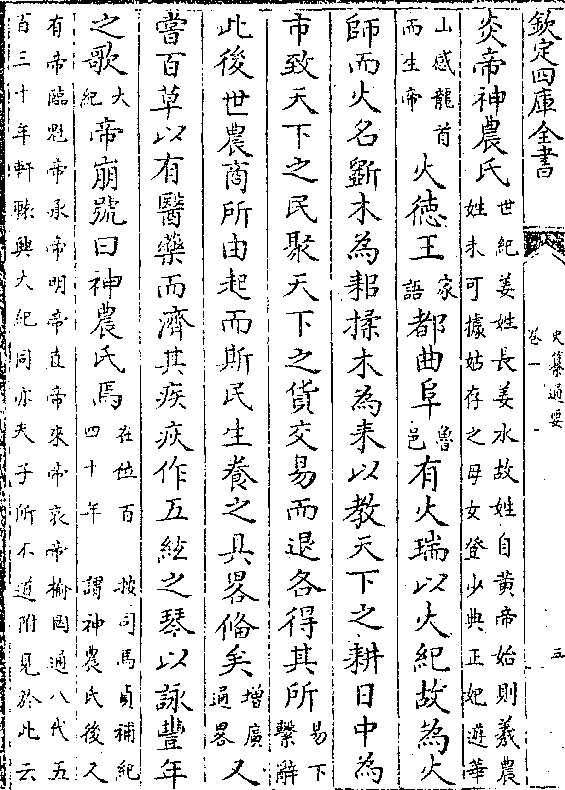 欽定四庫全書
史纂通要
卷一
五
炎帝神農氏世紀姜姓長姜水故姓自黃帝始則羲農
姓未可據姑存之母女登少典正妃遊華
山感龍首
而生帝
火德王家
語都曲阜魯
邑有火瑞以火紀故為火
師而火名斵木為耜揉木為耒以教天下之耕日中為
市致天下之民聚天下之貨交易而退各得其所易下
繫辭
此後世農商所由起而斯民生養之具畧備矣增廣
通畧又
嘗百草以有醫藥而濟其疾疢作五絃之琴以詠豐年
之歌大
紀帝崩號曰神農氏焉在位百
四十年
按司馬貞補紀
謂神農氏後又
有帝臨魁帝承帝明帝直帝來帝哀帝榆罔通八代五
百三十年軒轅興大紀同亦夫子所不道附見於此云